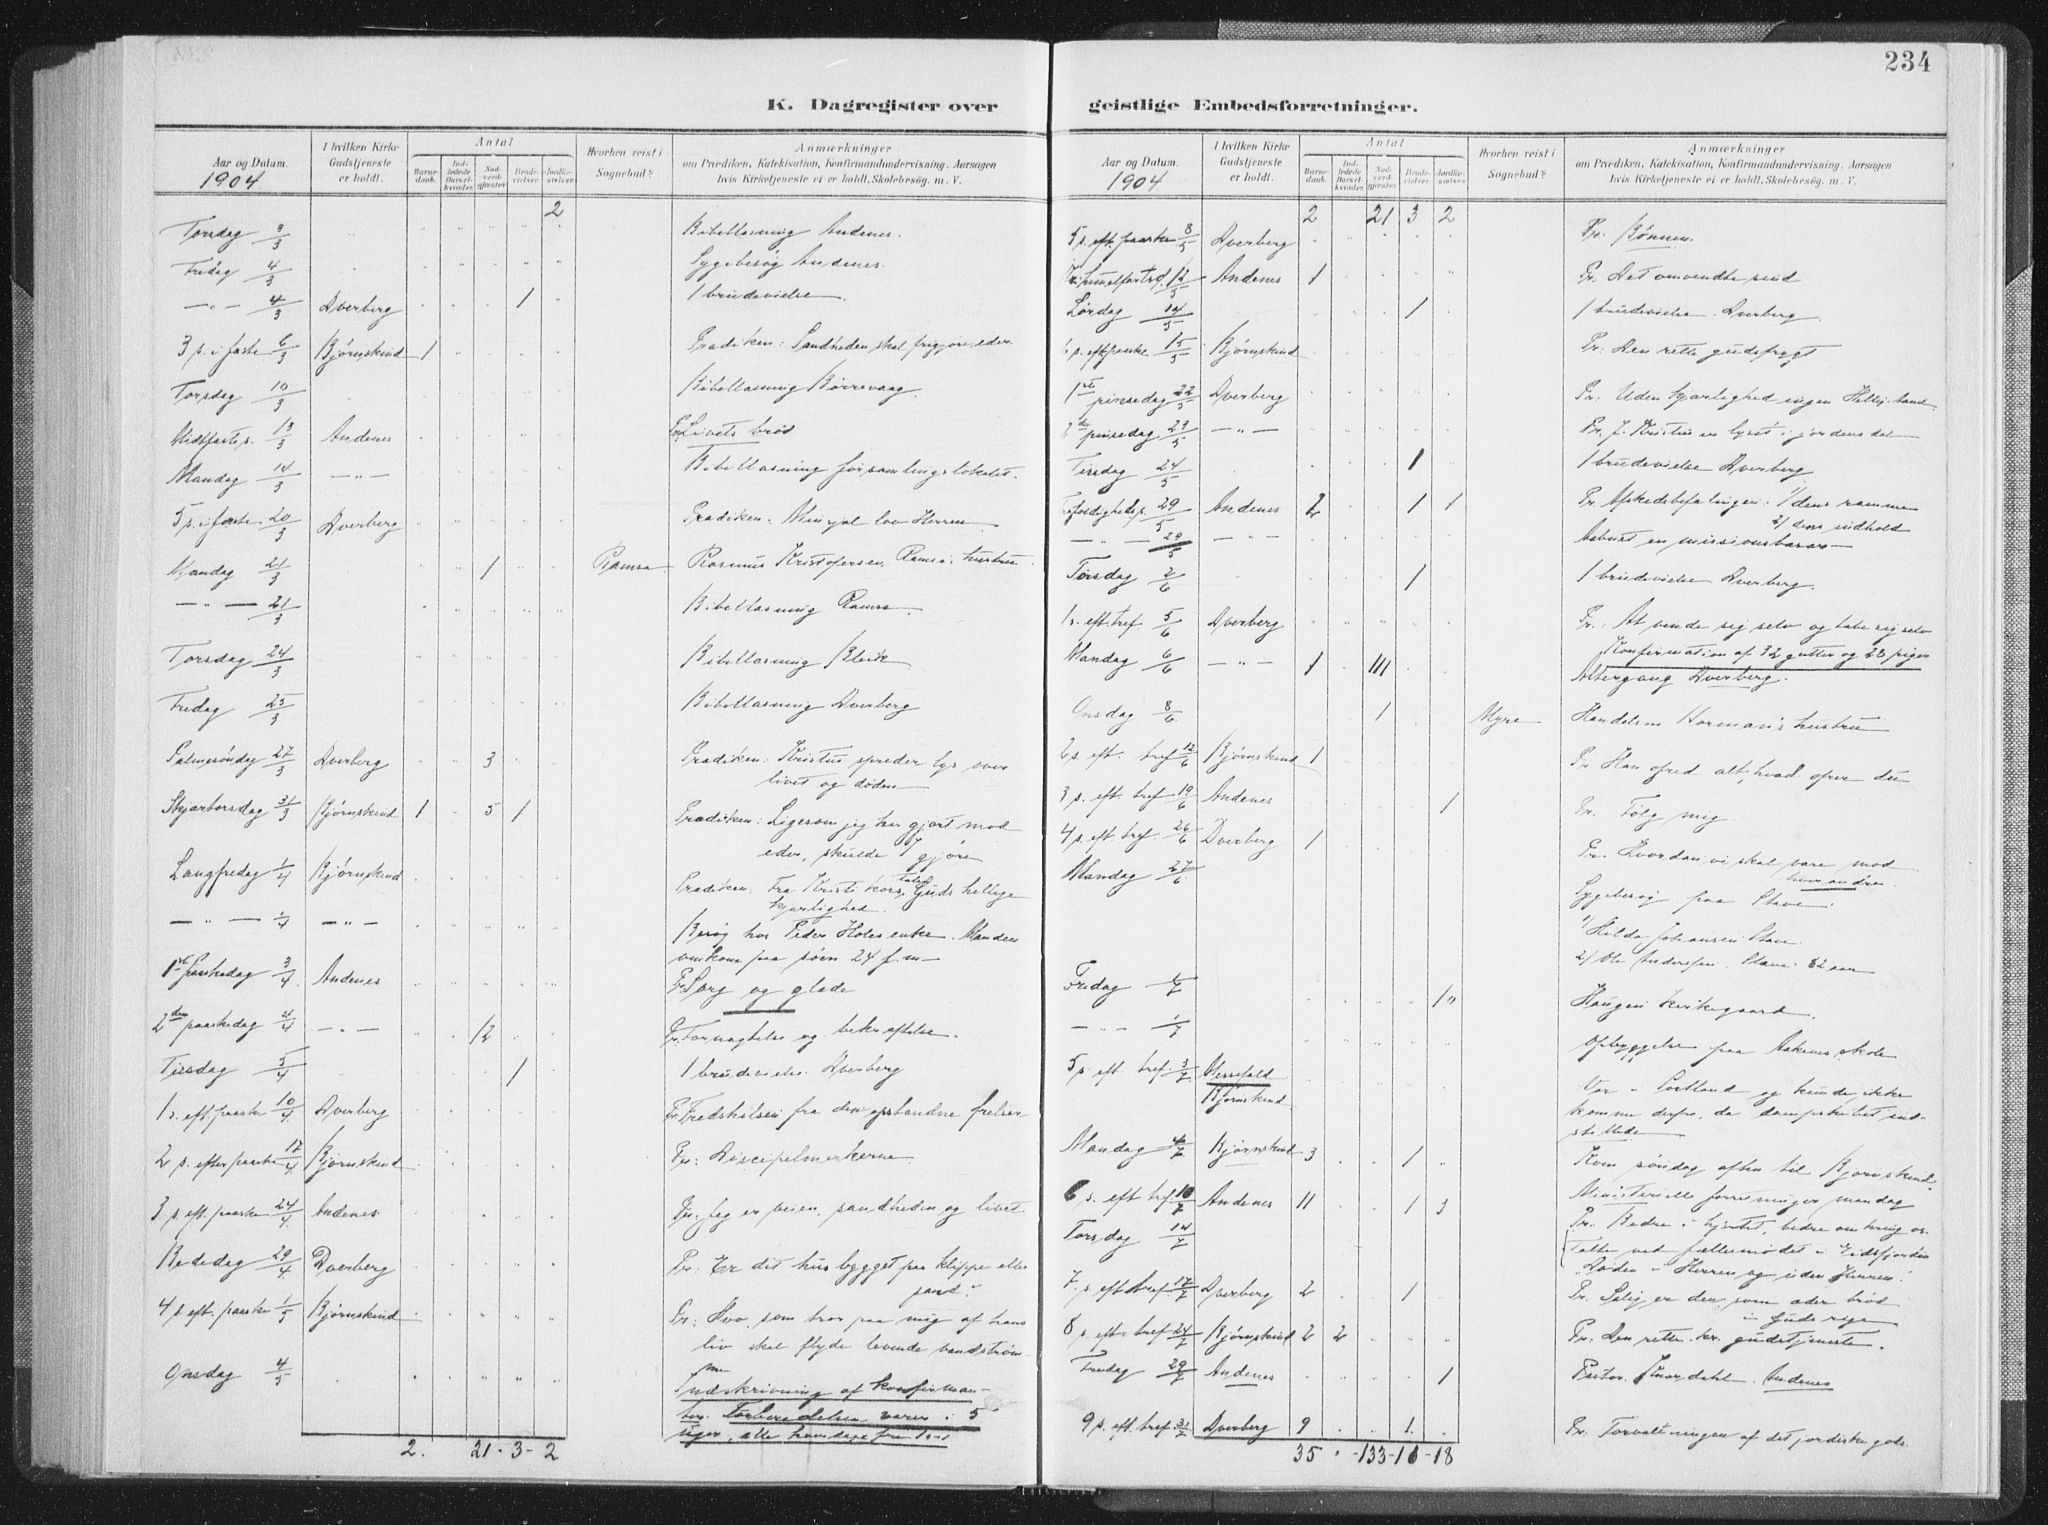 234
K. Dagregister over geistlige Embedsforretninger.
Aar og Datum. 1904
I hvilken Kirke Gudstjeneste er holdt.
Antal
Barnedaab. Indledede Barselkvinder. Nadverdgjester. Brudevielser. Jordfæstelser.
Hvorhen reist i Sognebud?
Anmærkninger
om Prædiken, Katekisation, Konfirmandundervisning, Aarsagen
hvis Kirketjeneste ei er holdt, Skolebesøg. m. V.
2
Torsdag 3/3 Bibellæsning Andenes.
Fredag 4/3 Sygebesøg Andenes.
— " — 4/3 Dverberg 1 1 brudevielse.
3 s. i faste 6/3 Bjørnskind 1 Prædiken: Sandheden skal frigjøre eder.
Torsdag 10/3 Bibellæsning Børrevaag
Midtfastes. 13/3 Andenes Pr. Livets brød
Mandag 14/3 — " — Bibellæsning forsamlingslokalet.
5 s. i faste 20/3 Dverberg Prædiken. Min sjæl lov Herren
Mandag 21/3 1 Ramsa Rasmus Kristofersen, Ramsa: hustru.
— " — 21/3 Bibellæsning Ramsa.
Torsdag 24/3 Bibellæsning Bleik
Fredag 25/3 Bibellæsning Dverberg
Palmesøndag 27/3 Dverberg 3 Prædiken: Kristus spreder lys over
livet og døden
Skjærtorsdag 31/3 Bjørnskind 1 5 1 Prædiken: Ligesom jeg har gjort mod
eder, skulde I gjøre
Langfredag 1/4 Bjørnskind Prædiken: Fra Kristi kors taler Guds hellige
kjærlighed.
— " — 1/4 — " — Besøg hos Peder Holes enke. Manden
omkom paa søen 24 f. m—
1ste Paaskedag 3/4 Andenes Pr. Sorg og glæde
2den paaskedag 4/4 — " — 12 Pr. Fornægtelse og bekræftelse.
Tirsdag 5/4 1 1 brudevielse Dverberg
1 s. eft. paaske 10/4 Dverberg Pr. Fredshilsen fra den opstandne frelser
2 s. efter paaske 17/4 Bjørnskind Pr. Discipelmerkerne
3 s. eft. paaske 24/4 Andenes Pr. Jeg er veien, sandheden og livet
Bededag 29/4 Dverberg Pr. Er dit hus bygget paa klippe eller
sand?
4 s. eft. paaske 1/5 Bjørnskind Pr. Hvo, som tror paa mig af hans
liv skal flyde levende vandstrøm-
me
Onsdag 4/5 Indskrivning af konfirman-
ter. Forberedelsen varer i 5
uger, alle hverdage fra
2. 21 - 3 - 2
Aar og Datum. 1904
I hvilken Kirke Gudstjeneste er holdt.
Antal
Barnedaab. Indledede Barselkvinder. Nadverdgjester. Brudevielser. Jordfæstelser.
Hvorhen reist i Sognebud?
Anmærkninger
om Prædiken, Katekisation, Konfirmandundervisning, Aarsagen
hvis Kirketjeneste ei er holdt, Skolebesøg. m. V.
2 21 3 2
5 s. eft. paaske 8/5 Dverberg Pr. Bønnen.
Kr. himmelfartsd. 12/5 Andenes 1 Pr. Det omvendte sind
Lørdag 14/5 1 1 brudevielse. Dverberg.
6 s. eft. paaske 15/5 Bjørnskind Pr: Den rette gudsfrygt
1ste pinsedag 22/5 Dverberg Pr: Uden kjærlighed ingen Hellig-aand
2den pinsedag 23/5 — " — Pr. J. Kristus er lyset i jordens dal
Tirsdag 24/5 1 1 brudevielse Dverberg
Trefoldigheds. 29/5 Andenes 2 1 1 Pr. Afskedsbefalingen. 1/ dens ramme
2/ dens indhold
— " — 29/5 — " — Aabnet en missionsbasar
Torsdag 2/6 1 1 brudevielse Dverberg.
1 s. eft. tref. 5/6 Dverberg Pr.: At vinde sig selv og tabe sig selv
Konfirmation af 32 gutter og 28 piger
Mandag 6/6 — " — 1 111 Altergang Dverberg.
Onsdag 8/6 1 Myre Handelsm. Normans hustru
2 s. eft. tref 12/6 Bjørnskind 1 Pr. Han ofred alt, hvad ofrer du
3 s. eft. tref 19/6 Andenes 1 Pr. Følg mig
4 s. eft. tref. 26/6 Dverberg 1 Pr. Hvordan vi skal være mod
hverandre.
Mandag 27/6 Sygebesøg paa Stave:
1/ Hilda Johansen Stave
2/ Ole Andersen. Stave 82 aar
Fredag 1/7 10 Haugen kirkegaard.
— " — 1/7 Opbyggelse paa Aakenes skole
5 s. eft tref. 3/7 Messefald Bjørnskind Var i Lovland og kunde ikke
komme derfra, da dampskibet ind-
stillede
Mandag 4/7 Bjørnskind 3 1 Kom søndag aften til Bjørnskind.
Ministerielle forretninger mandag
6 s. eft tref 10/7 Andenes 11 1 3 Pr. Bedre i hjertet, bedre omkring os
Torsdag 14/7 Talte ved fællesmødet i Eidsfjorden
Døden i Herren og uden Herren.
7. s. eft tref. 17/7 Dverberg 2 1 Pr. Salig er den, som æder brød
i Guds rige
8 s. eft. tref. 24/7 Bjørnskind 2 2 Pr. Den rette kr. gudstjeneste.
Fredag 29/7 Andenes 1 Pastor Andenes
9 s. eft. tref. 31/7 Dverberg 9 1 Pr. Forvaltningen af det jordiske gods.
35 133 - 16 - 18